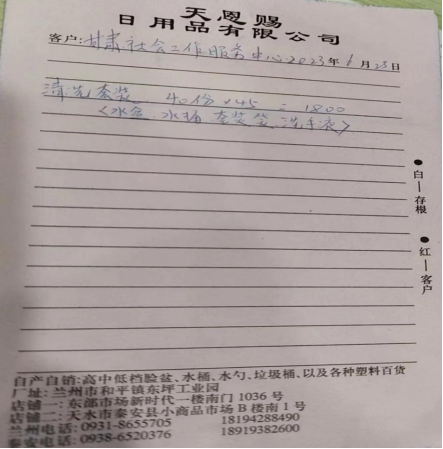 天恩赐
日用品有限公司
客户:甘肃社会工作服务中心2023年1月23日
清洗套装 40份×45=1800
〈水盆 水桶 套装袋 洗手液〉
●白—存根
●红—客户
自产自销:高中低档脸盆、水桶、水勺、垃圾桶、以及各种塑料百货
厂址:兰州市和平镇东坪工业园
店铺一:东部市场新时代一楼南门1036号
店铺二:天水市秦安县小商品市场B楼南1号
兰州电话:0931-8655705 18194288490
秦安电话:0938-6520376 18919382600